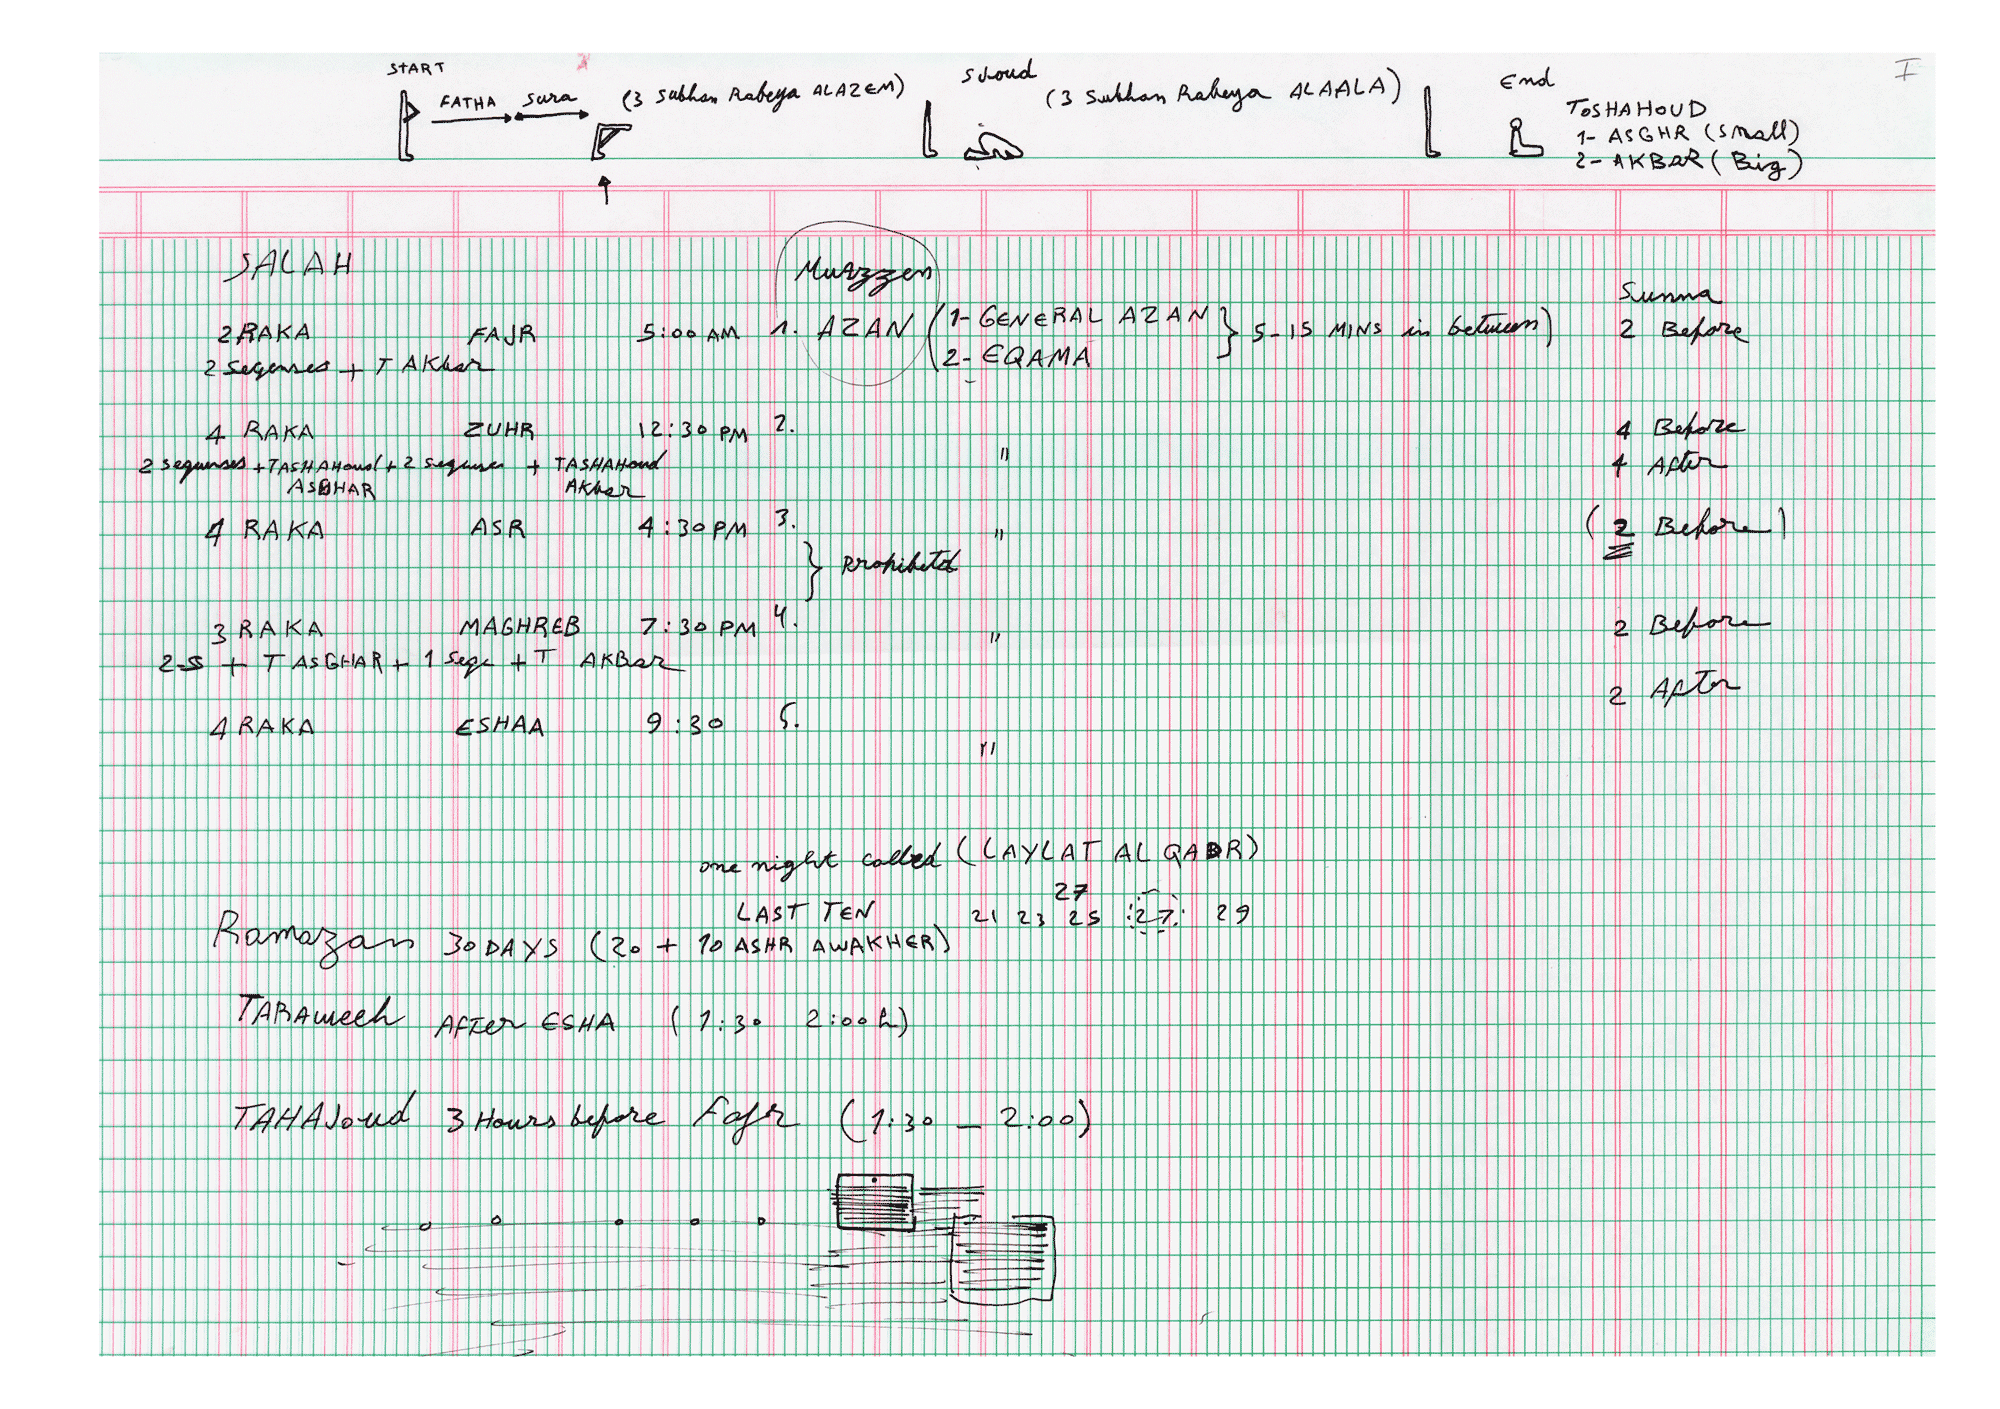 I
START
FATHA sura (3 Subhan Rabeya ALAZEM) SJoud (3 Subhan Rabeya ALAALA) End
TOSHAHOUD
1- ASGHR (small)
2- AKBAR (Big)
SALAH Muazzen Sunna
2 RAKA FAJR 5:00 AM 1. AZAN (1- GENERAL AZAN } 5-15 MINS in between) 2 Before
2- EQAMA
2 seqenses + T AKbar
4 RAKA ZUHR 12:30 PM 2. " 4 Before
2 sequnses + TASHAHoud + 2 sequnse + TASHAHoud 4 After
ASGHAR AKbar
4 RAKA ASR 4:30 PM 3. " (2 Before)
} Prohibeted
3 RAKA MAGHREB 7:30 PM 4. " 2 Before
2-S + T ASGHAR + 1 Seqe + T AKBar
2 After
4 RAKA ESHAA 9:30 5. "
one night called (LAYLAT AL QADR)
27
LAST TEN 21 23 25 27 29
Ramazan 30 DAYS (20 + 10 ASHR AWAKHER)
TARAweeh AFTer ESHA (1:30 2:00 h)
TAHAJoud 3 Hours before Fajr (1:30 — 2:00)